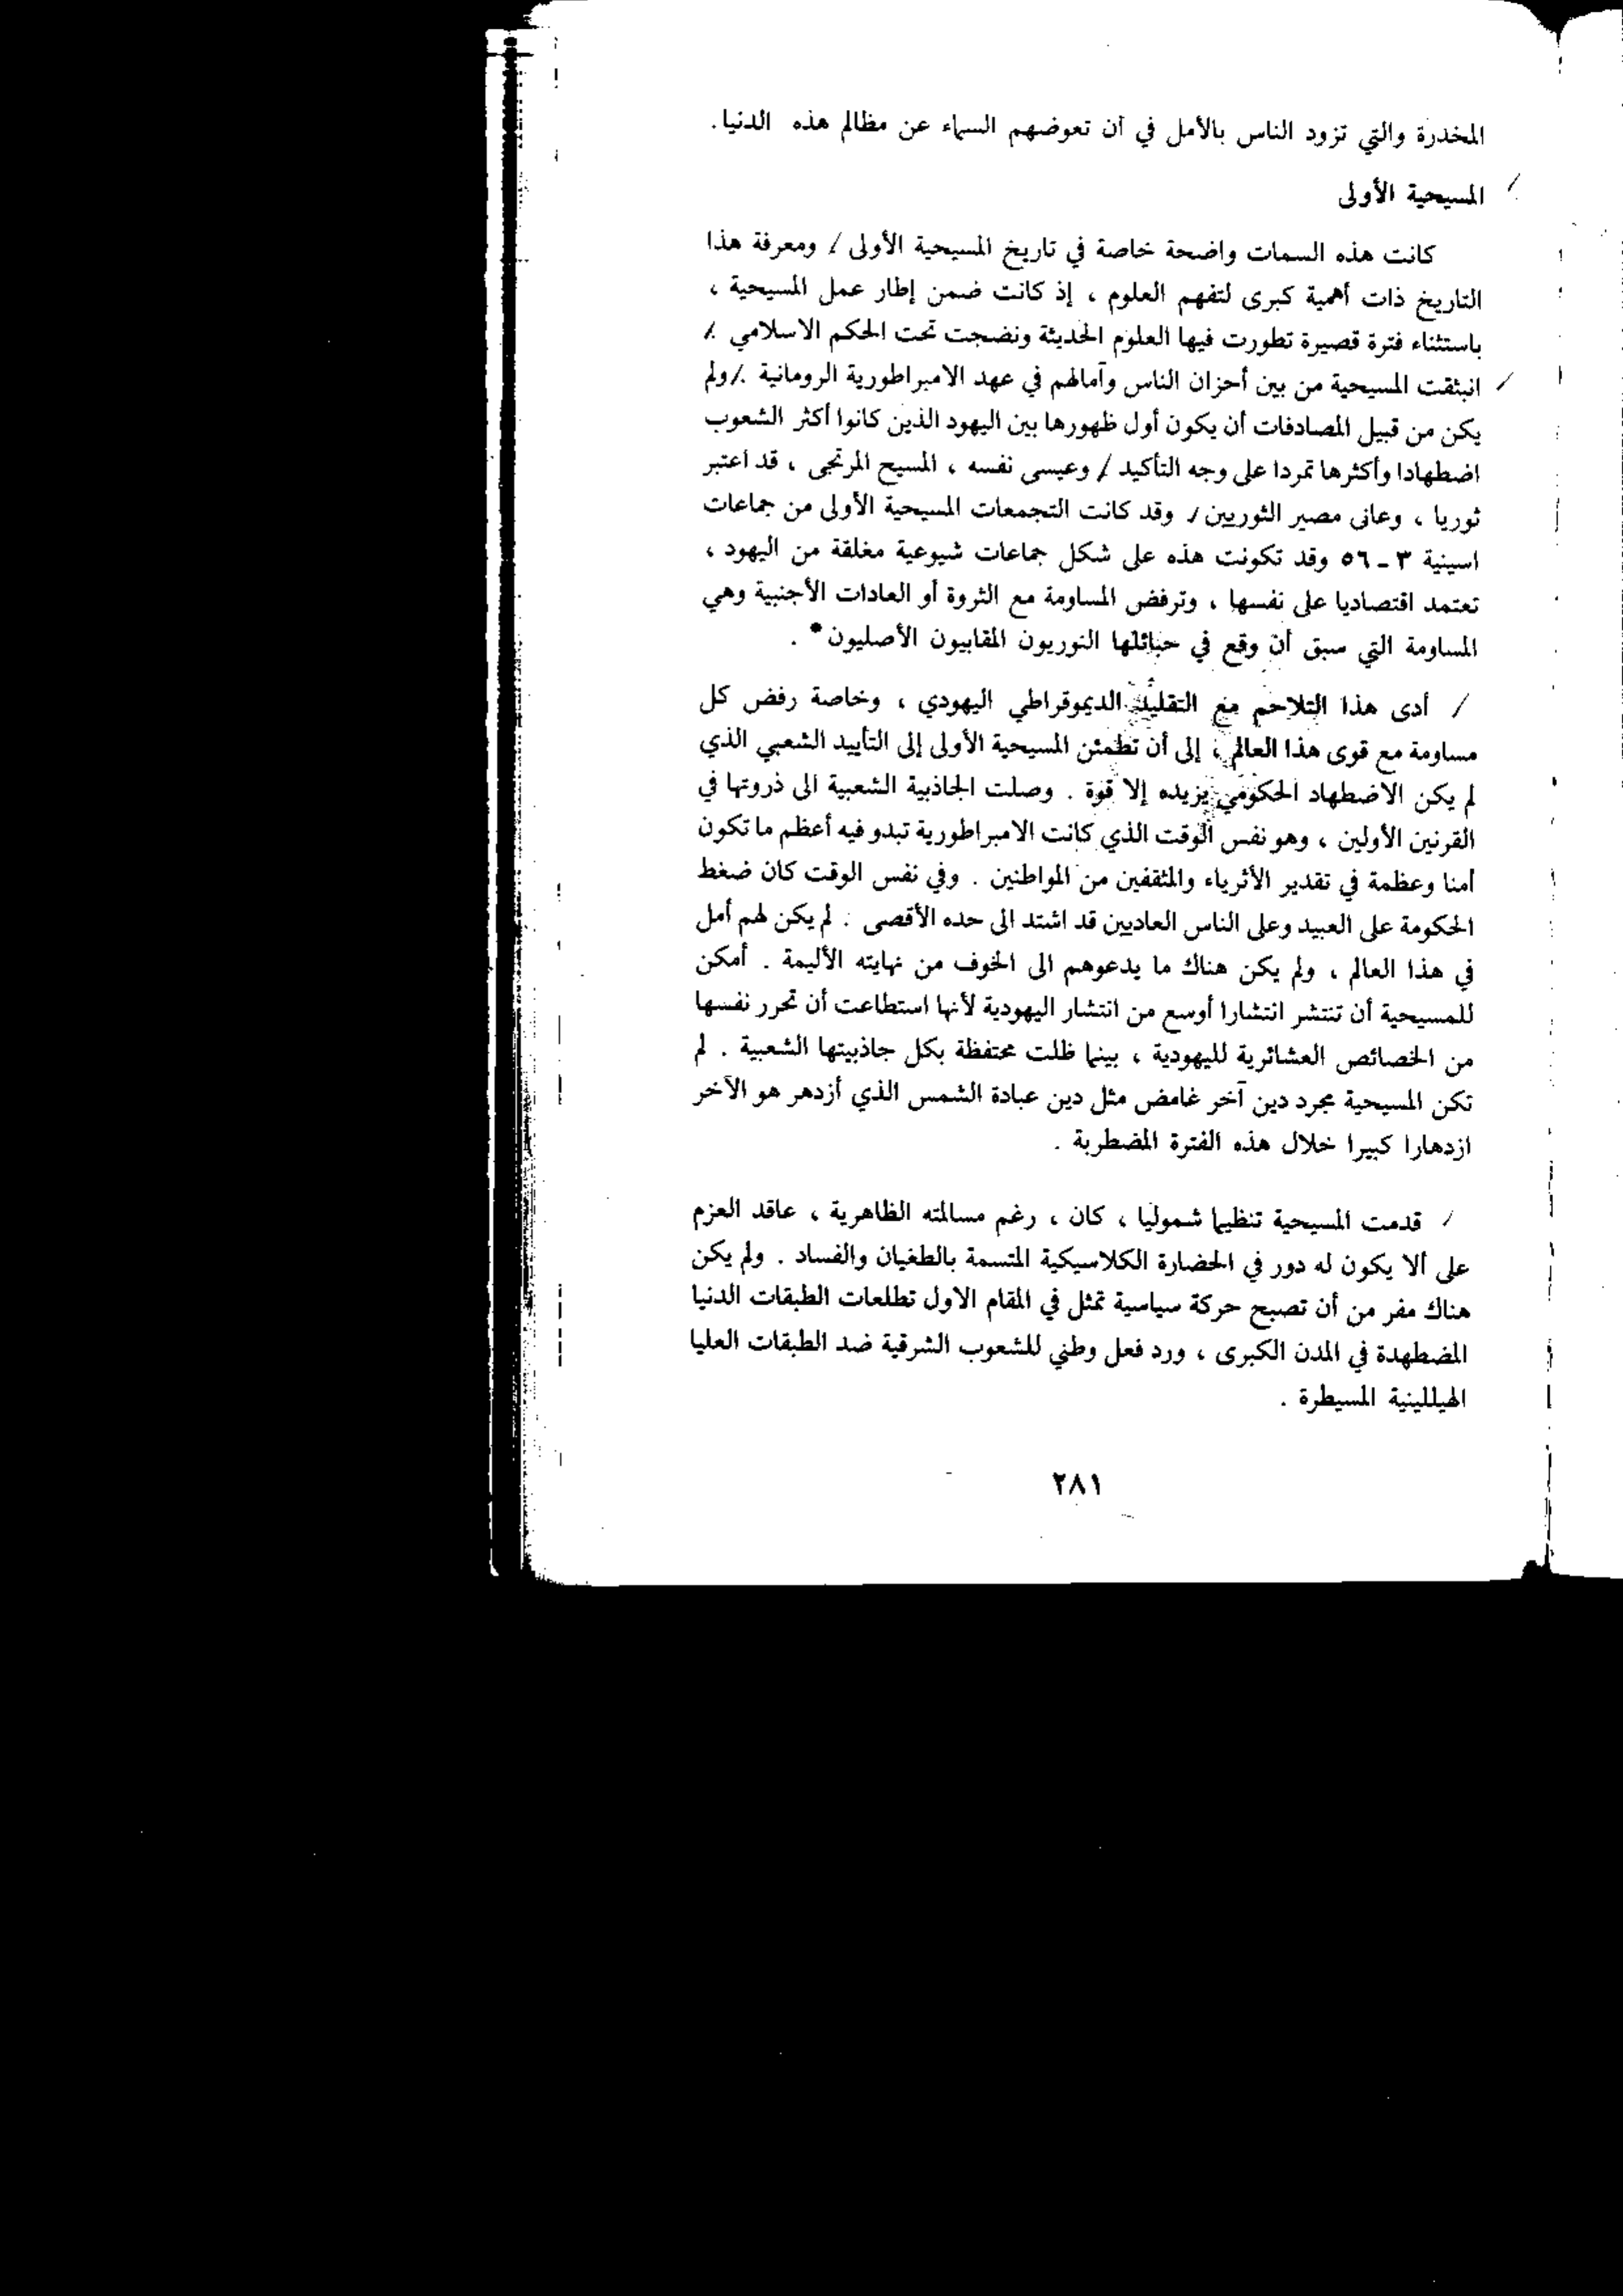 المخدرة والتي تزود الناس بالأمل في أن تعوضهم السماء عن مظالم هذه الدنيا.
المسيحية الأولى
كانت هذه السمات واضحة خاصة في تاريخ المسيحية الأولى / ومعرفة هذا
التاريخ ذات أهمية كبرى لتفهم العلوم ، إذ كانت ضمن إطار عمل المسيحية ،
باستثناء فترة قصيرة تطورت فيها العلوم الحديثة ونضجت تحت الحكم الاسلامي ./
انبثقت المسيحية من بين أحزان الناس وآمالهم في عهد الامبراطورية الرومانية ./ ولم
يكن من قبيل المصادفات أن يكون أول ظهورها بين اليهود الذين كانوا أكثر الشعوب
اضطهادا وأكثرها تمردا على وجه التأكيد / وعيسى نفسه ، المسيح المرتجى ، قد اعتبر
ثوريا ، وعانى مصير الثوريين / وقد كانت التجمعات المسيحية الأولى من جماعات
اسينية ٣ ـ ٥٦ وقد تكونت هذه على شكل جماعات شيوعية مغلقة من اليهود ،
تعتمد اقتصاديا على نفسها ، وترفض المساومة مع الثروة أو العادات الأجنبية وهي
المساومة التي سبق أن وقع في حبائلها النوريون المقابيون الأصليون* .
/ أدى هذا التلاحم مع التقليد الديموقراطي اليهودي ، وخاصة رفض كل
مساومة مع قوى هذا العالم ، إلى أن تطمئن المسيحية الأولى إلى التأييد الشعبي الذي
لم يكن الاضطهاد الحكومي يزيده إلا قوة . وصلت الجاذبية الشعبية الى ذروتها في
القرنين الأولين ، وهو نفس الوقت الذي كانت الامبراطورية تبدو فيه أعظم ما تكون
أمنا وعظمة في تقدير الأثرياء والمثقفين من المواطنين . وفي نفس الوقت كان ضغط
الحكومة على العبيد وعلى الناس العاديين قد اشتد الى حده الأقصى . لم يكن لهم أمل
في هذا العالم ، ولم يكن هناك ما يدعوهم الى الخوف من نهايته الأليمة . أمكن
للمسيحية أن تنتشر انتشارا أوسع من انتشار اليهودية لأنها استطاعت أن تحرر نفسها
من الخصائص العشائرية لليهودية ، بينما ظلت محتفظة بكل جاذبيتها الشعبية . لم
تكن المسيحية مجرد دين آخر غامض مثل دين عبادة الشمس الذي أزدهر هو الآخر
ازدهارا كبيرا خلال هذه الفترة المضطربة .
/ قدمت المسيحية تنظيما شموليا ، كان ، رغم مسالمته الظاهرية ، عاقد العزم
على ألا يكون له دور في الحضارة الكلاسيكية المتسمة بالطغيان والفساد . ولم يكن
هناك مفر من أن تصبح حركة سياسية تمثل في المقام الاول تطلعات الطبقات الدنيا
المضطهدة في المدن الكبرى ، ورد فعل وطني للشعوب الشرقية ضد الطبقات العليا
الهيللينية المسيطرة .
٢٨١